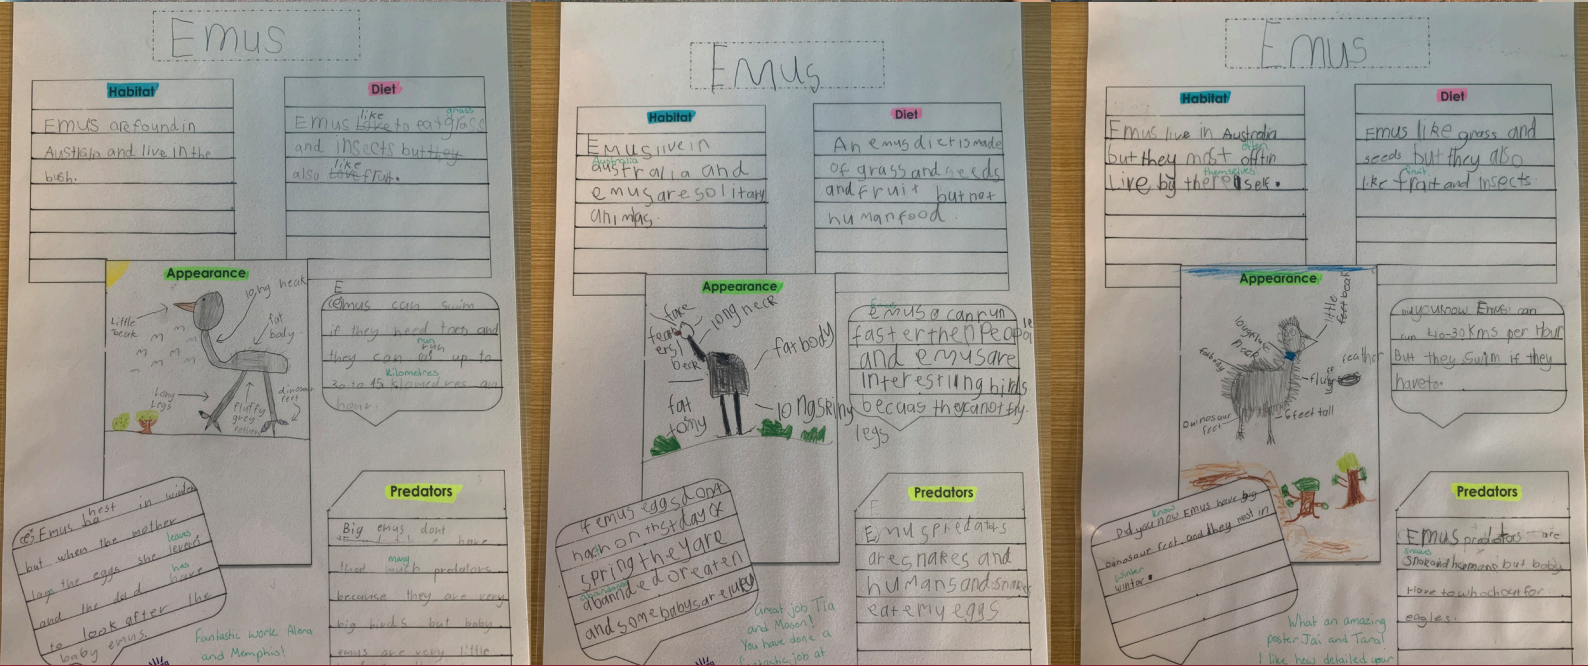 Emus
Habitat
Emus are found in
Australia and live in the
bush.
Diet
like grass
Emus like to eat glass
and insects but they
like
also love fruit.
Appearance
Little
beak
long neak
fat
body
Long
Legs
fluffy
grey
dinosaur
feet
E
(e)mus can swim
if they need too and
run
they can up to
kilometres
30 to 45 an
hour.
Emus nest in winter
but when the mother
leaves
lays the eggs she
has
and the dad have
to look after the
baby emus.
Predators
Big emus dont
have
many
that much predators
because they are very
big birds but baby
emus are very little
Fantastic work Alana
and Memphis!
Emus
Habitat
Emus live in
Australia
australia and
emus are solitary
Diet
An emus diet is made
of grass and seeds
and fruit but not
human food.
Appearance
long neck
fat body
fat
long skiny
legs
Emus
emus can run
faster then
and emus are
interesting birds
they can not fly.
if emus eggs dont
hach on the 1st day of
spring they are
abandoned
or eaten
and some babys are lucky
Predators
Emus predators
are snakes and
humans and snakes
eat emy eggs
Great job Tia
and Mason!
You have done a
fantastic job at
Emus
Habitat
Emus live in Australia
often
but they most oftin
themselves
Live by there self.
Diet
Emus like grass and
seeds but they also
fruit
like frait and insects.
Appearance
little
neck
fat body
Dinosaur
feet
6 feet tall
did you now Emus can
run 40-30 kms per Hour
But they Swim if they
have to.
know
Did you now Emus have big
Dinosaur feet and they in
winter
winter.
Predators
Emus predators are
snakes
and humans but baby
Have to whach out for
eagles.
What an amazing
poster Jai and Tana!
I like how detailed your